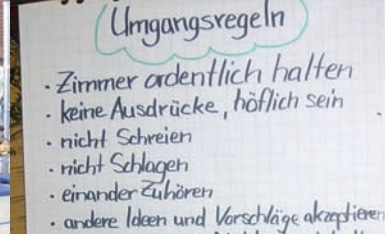 Umgangsregeln
· Zimmer ordentlich halten
· keine Ausdrücke, höflich sein
· nicht Schreien
· nicht Schlagen
· einander Zuhören
· andere Ideen und Vorschläge akzeptieren